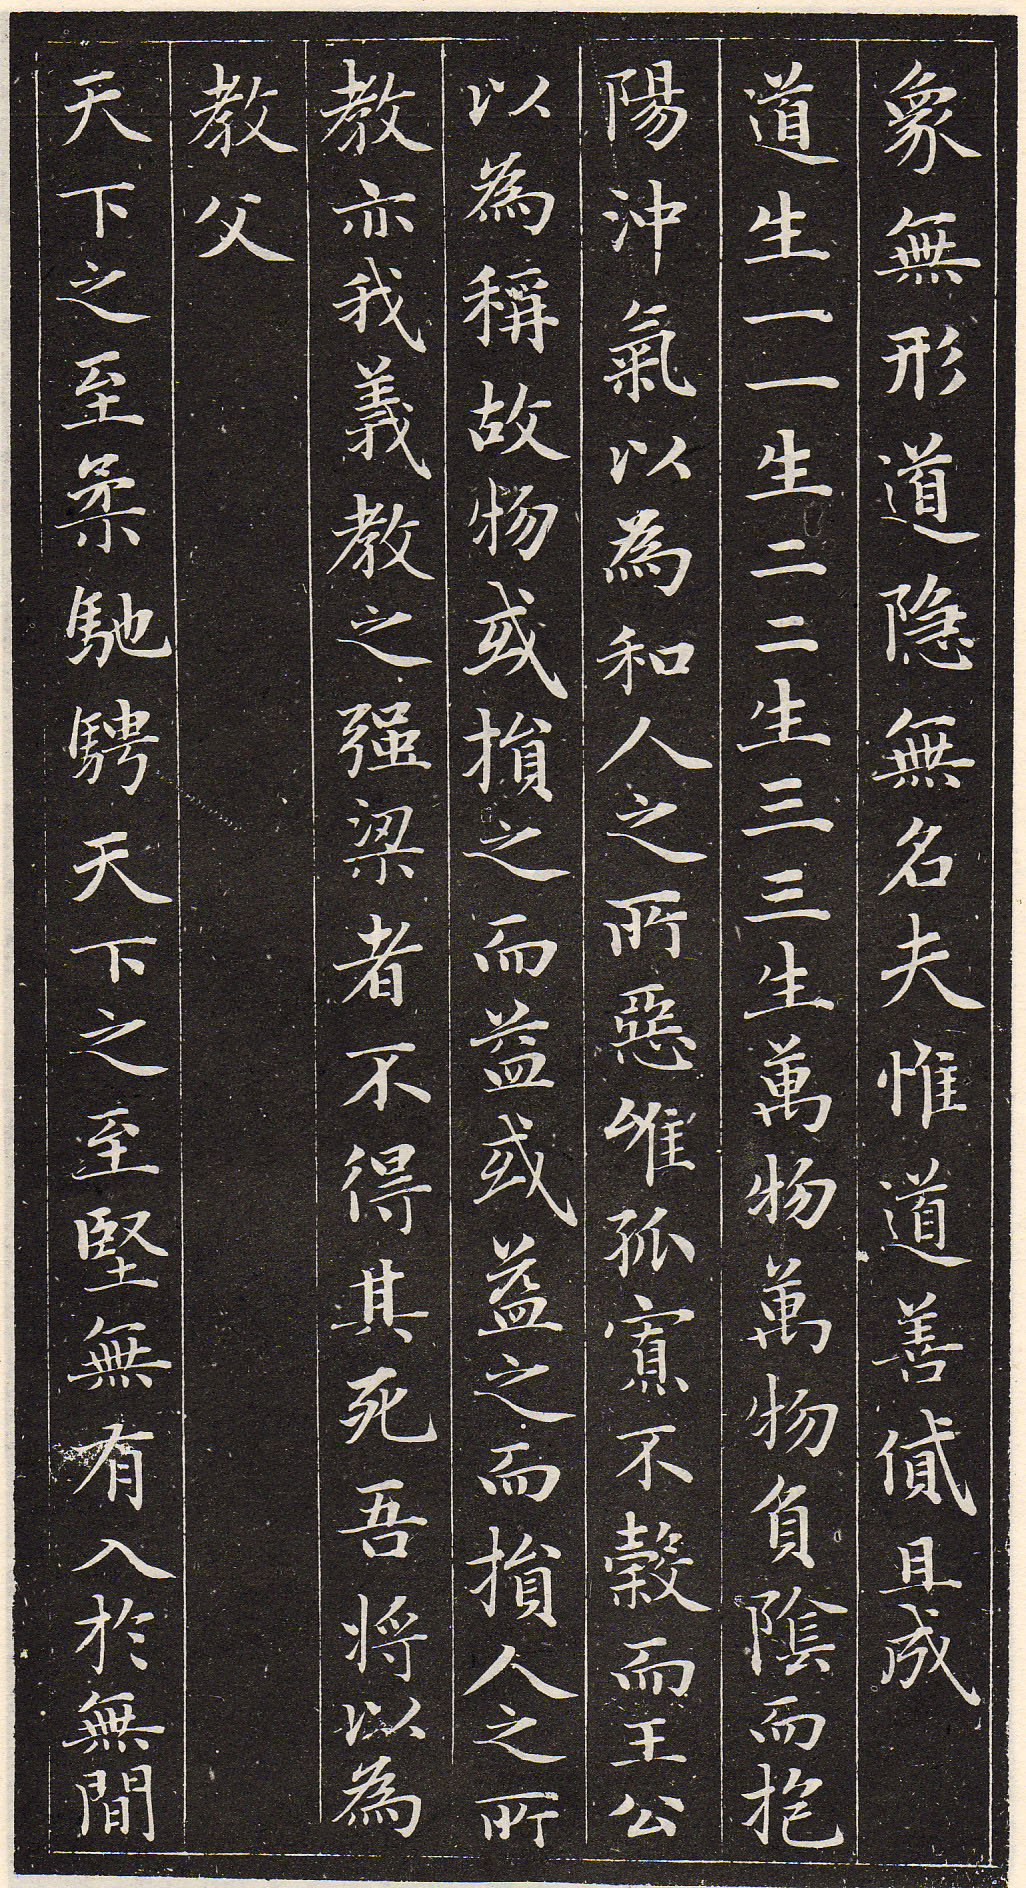 象無形道隱無名夫惟道善貸且成
道生一一生二二生三三生萬物萬物負陰而抱
陽沖氣以為和人之所惡唯孤寡不穀而王公
以為稱故物或損之而益或益之而損人之所
教亦我義教之强梁者不得其死吾將以為
教父
天下之至柔馳騁天下之至堅無有入於無間